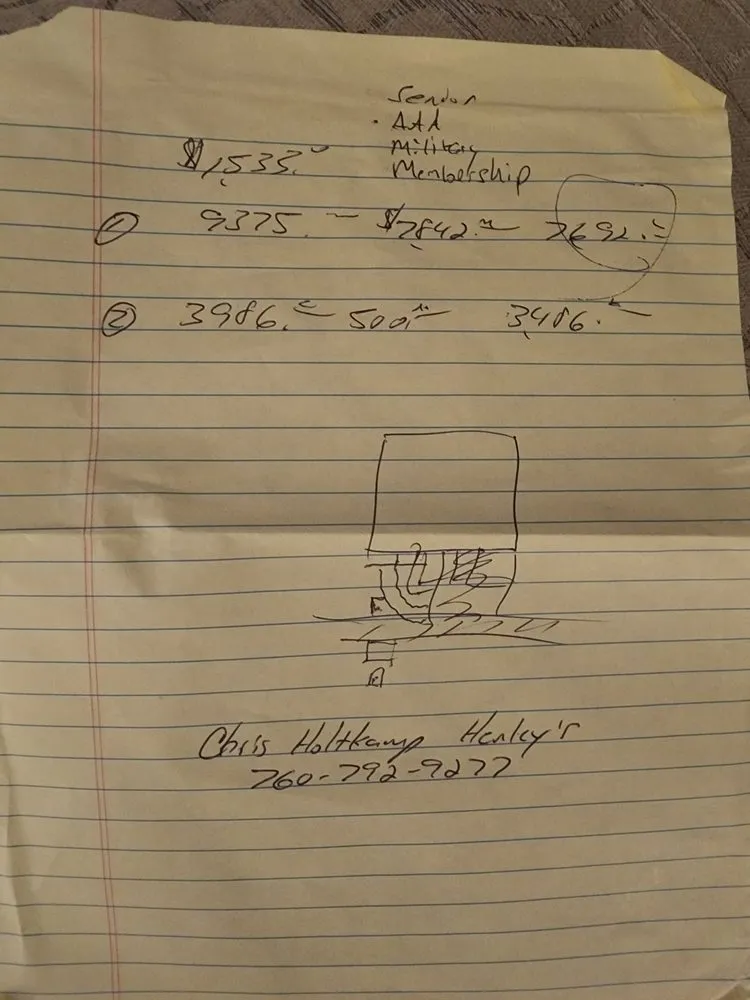 Senior
• AAA
Military
$1,533.00 Membership
① 9375. — $7,842.00 7,692.00
② 3986.00 500.00 3,486.00
Chris Holtkamp Henley's
760-792-9277